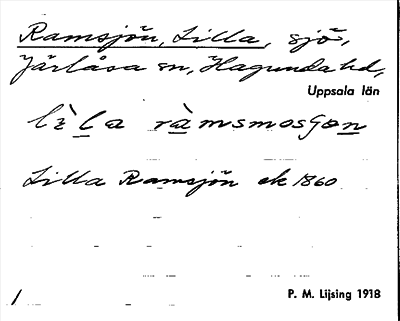 Ramsjön, Lilla, sjö,
Järlåsa sn, Hagunda hd,
Uppsala län
Lilla Ramsjön ek 1860
/
P. M. Lijsing 1918